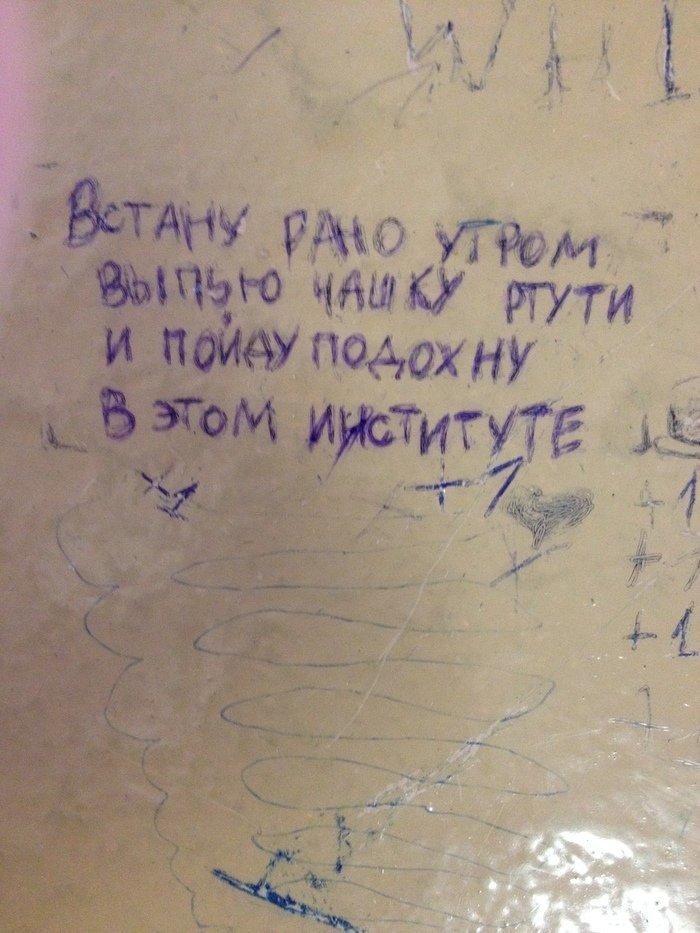 WHI
Встану рано утром
выпью чашку ртути
и пойду подохну
в этом институте
+1
+1
+1